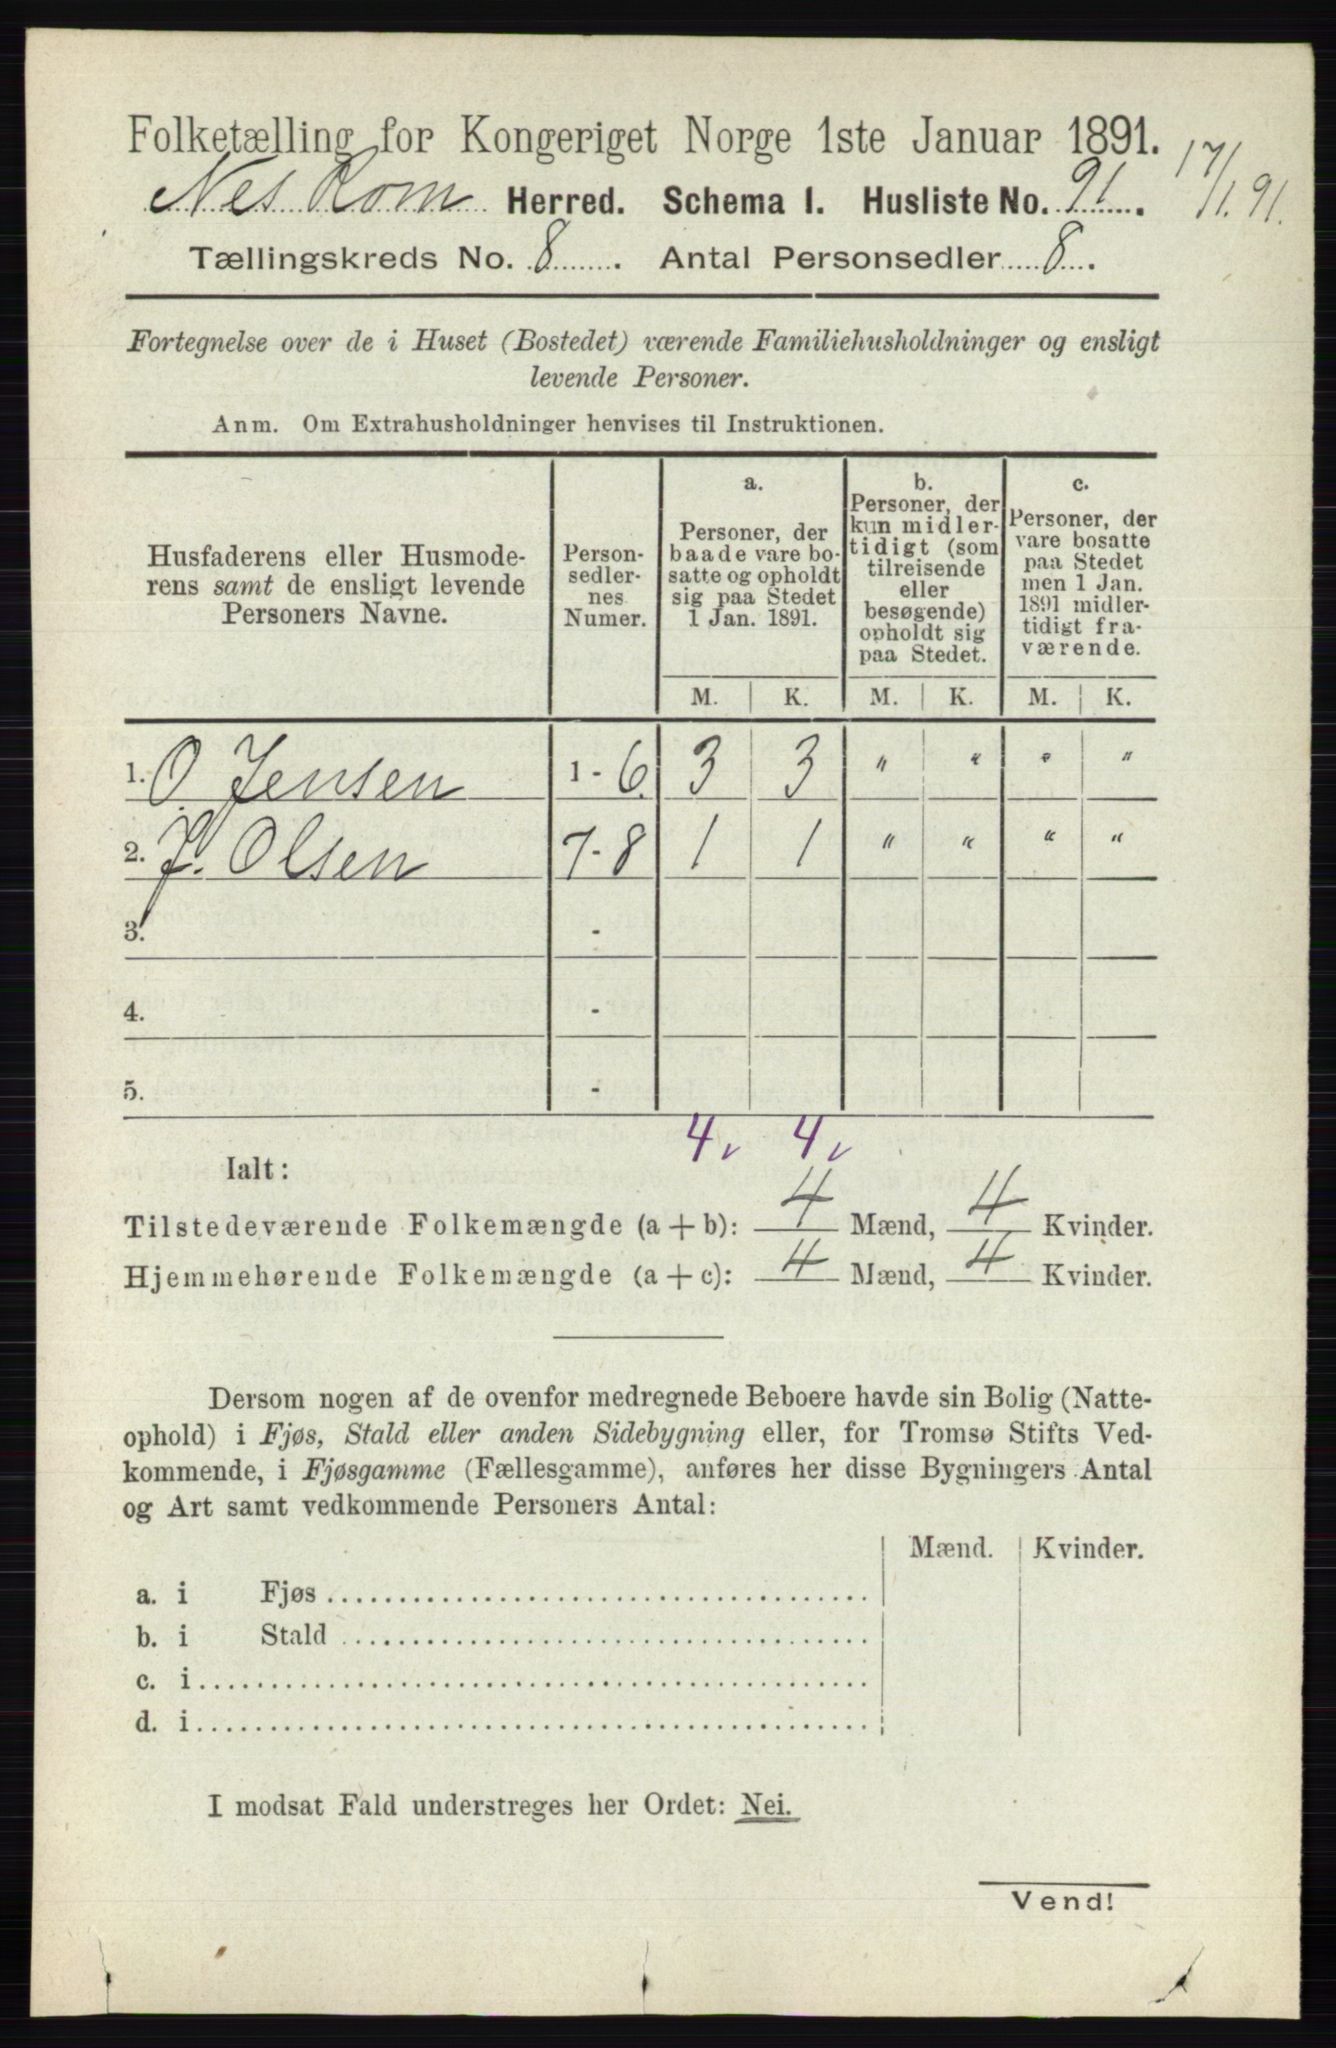 Folketælling for Kongeriget Norge 1ste Januar 1891.
Nes Rom Herred. Schema I. Husliste No. 91. 17/1.91.
Tællingskreds No. 8. Antal Personsedler 8.
Fortegnelse over de i Huset (Bostedet) værende Familiehusholdninger og ensligt
levende Personer.
Anm. Om Extrahusholdninger henvises til Instruktionen.
Husfaderens eller Husmode-
rens samt de ensligt levende
Personers Navne.
Person-
sedler-
nes
Numer.
a.
Personer, der
baade vare bo-
satte og opholdt
sig paa Stedet
1 Jan. 1891.
b.
Personer, der
kun midler-
tidigt (som
tilreisende
eller
besøgende)
opholdt sig
paa Stedet.
c.
Personer, der
vare bosatte
paa Stedet
men 1 Jan.
1891 midler-
tidigt fra-
værende.
M. K. M. K. M. K.
1. O Jensen 1 - 6. 3 3 " " " "
2. J. Olsen 7 - 8 1 1 " " " "
3. -
4. -
5. -
4 4
Ialt:
Tilstedeværende Folkemængde (a + b): 4 Mænd, 4 Kvinder.
Hjemmehørende Folkemængde (a + c): 4 Mænd, 4 Kvinder.
Dersom nogen af de ovenfor medregnede Beboere havde sin Bolig (Natte-
ophold) i Fjøs, Stald eller anden Sidebygning eller, for Tromsø Stifts Ved-
kommende, i Fjøsgamme (Fællesgamme), anføres her disse Bygningers Antal
og Art samt vedkommende Personers Antal:
Mænd. Kvinder.
a. i Fjøs
b. i Stald
c. i
d. i
I modsat Fald understreges her Ordet: Nei.
Vend!